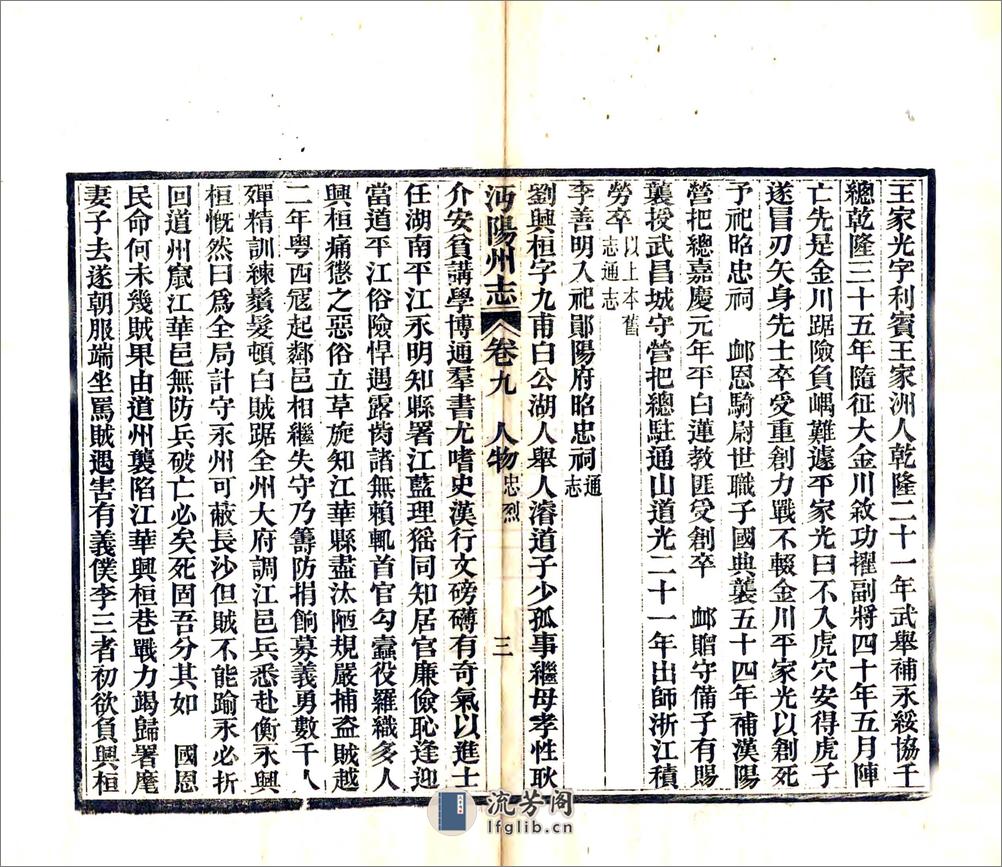 王家光字利賓王家洲人乾隆二十一年武舉補永綏協千
總乾隆三十五年隨征大金川敘功擢副將四十年五月陣
亡先是金川踞險負嵎難遽平家光曰不入虎穴安得虎子
遂冒刃矢身先士卒受重創力戰不輟金川平家光以創死
予祀昭忠祠　䘏恩騎尉世職子國典襲五十四年補漢陽
營把總嘉慶元年平白蓮教匪受創卒　䘏贈守備子有賜
襲授武昌城守營把總駐通山道光二十一年出師浙江積
勞卒以上本舊志通志
李善明入祀鄖陽府昭忠祠通志
劉興桓字九甫白公湖人舉人濬道子少孤事繼母孝性耿
沔陽州志　卷九　人物忠烈　三
介安貧講學博通羣書尤嗜史漢行文磅礴有奇氣以進士
任湖南平江永明知縣署江藍理猺同知居官廉儉恥逢迎
當道平江俗險悍遇露胔諸無賴輒首官勾蠹役羅織多人
興桓痛懲之惡俗立革旋知江華縣盡汰陋規嚴捕盜賊越
二年粵西寇起鄰邑相繼失守乃籌防捐餉募義勇數千人
殫精訓練鬚髮頓白賊踞全州大府調江邑兵悉赴衡永興
桓慨然曰爲全局計守永州可蔽長沙但賊不能踰永必折
回道州竄江華邑無防兵破亡必矣死固吾分其如　國恩
民命何未幾賊果由道州襲陷江華興桓巷戰力竭歸署麾
妻子去遂朝服端坐罵賊遇害有義僕李三者初欲負興桓
流芳阁
lfglib.cn